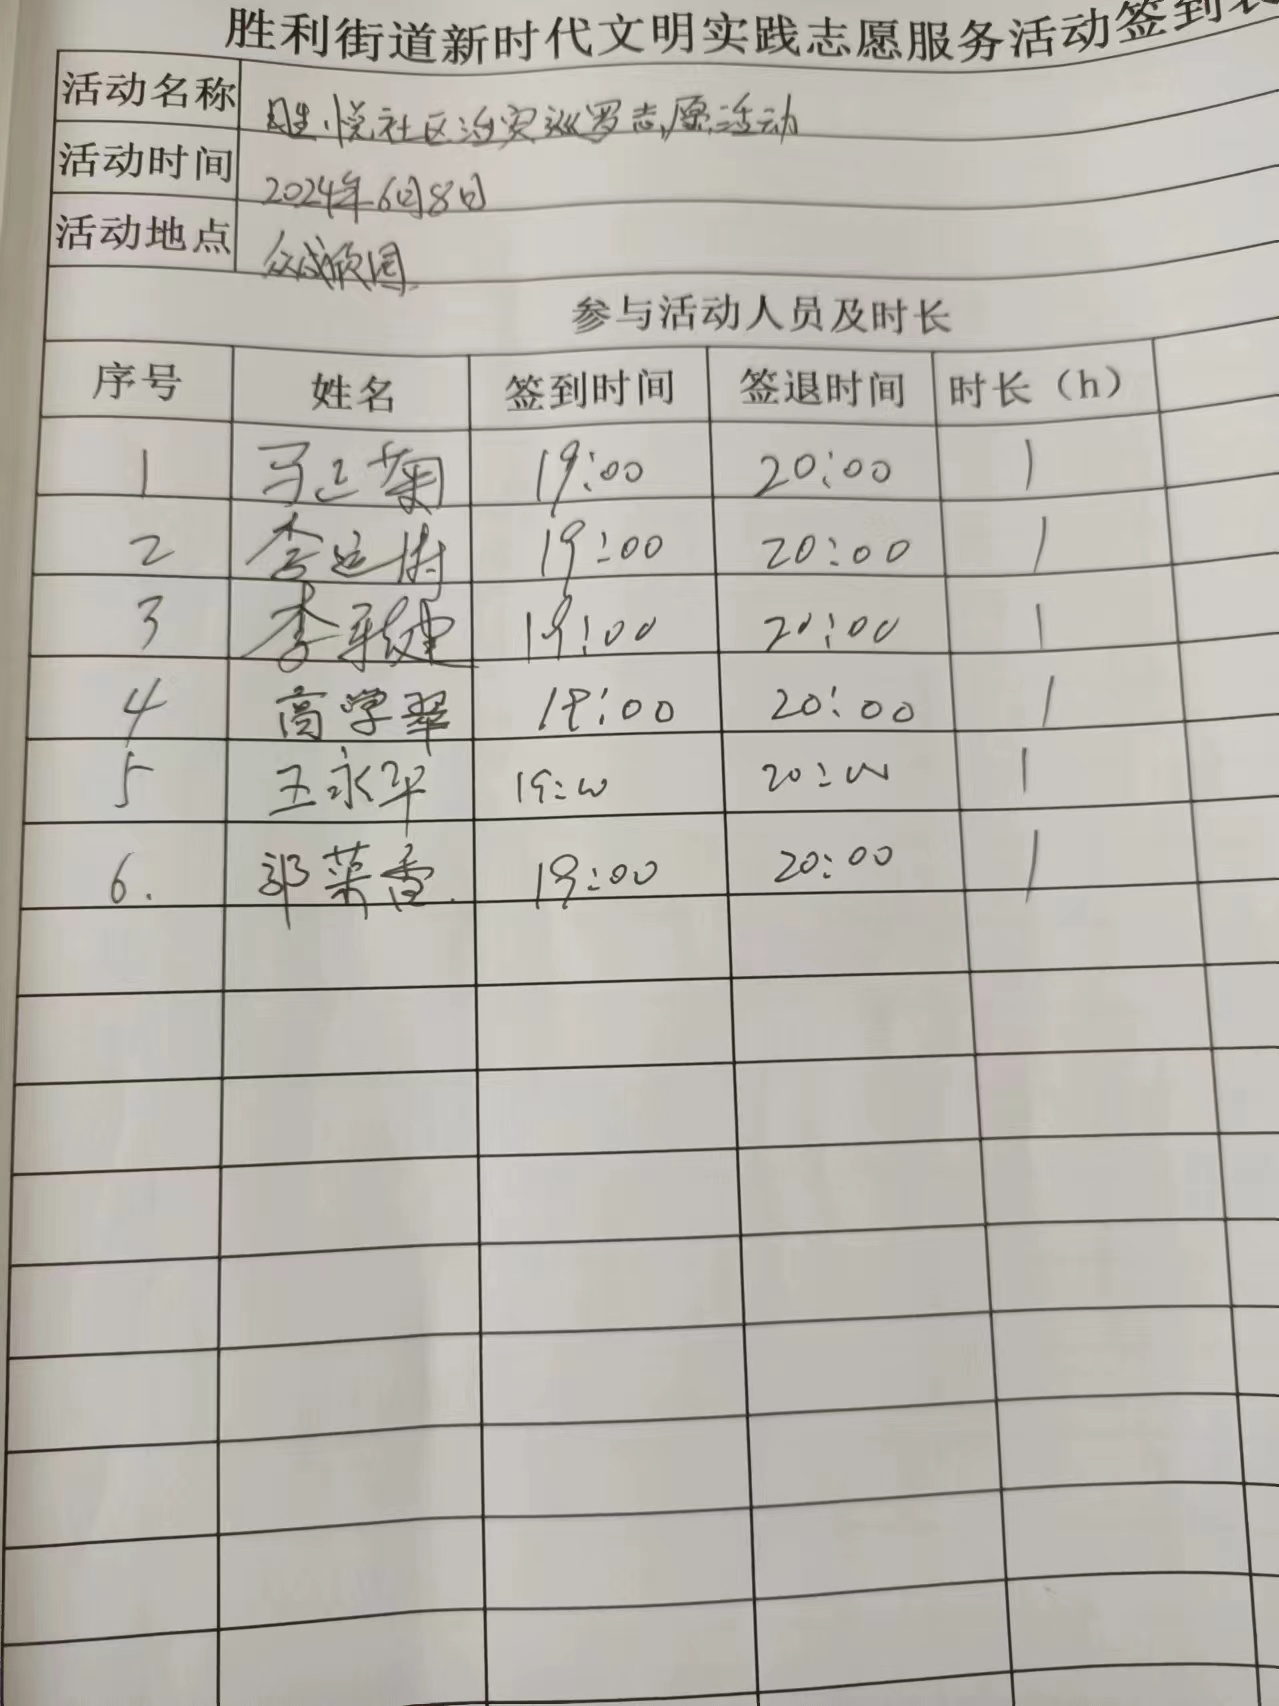 胜利街道新时代文明实践志愿服务活动签到表
活动名称 胜悦社区治安巡罗志愿活动
活动时间 2024年6月8日
活动地点 众成欣园
参与活动人员及时长
序号 姓名 签到时间 签退时间 时长（h）
1 马运菊 19:00 20:00 1
2 李运树 19:00 20:00 1
3 李建 19:00 20:00 1
4 高学翠 19:00 20:00 1
5 王永平 19:00 20:00 1
6. 郭菜香. 19:00 20:00 1